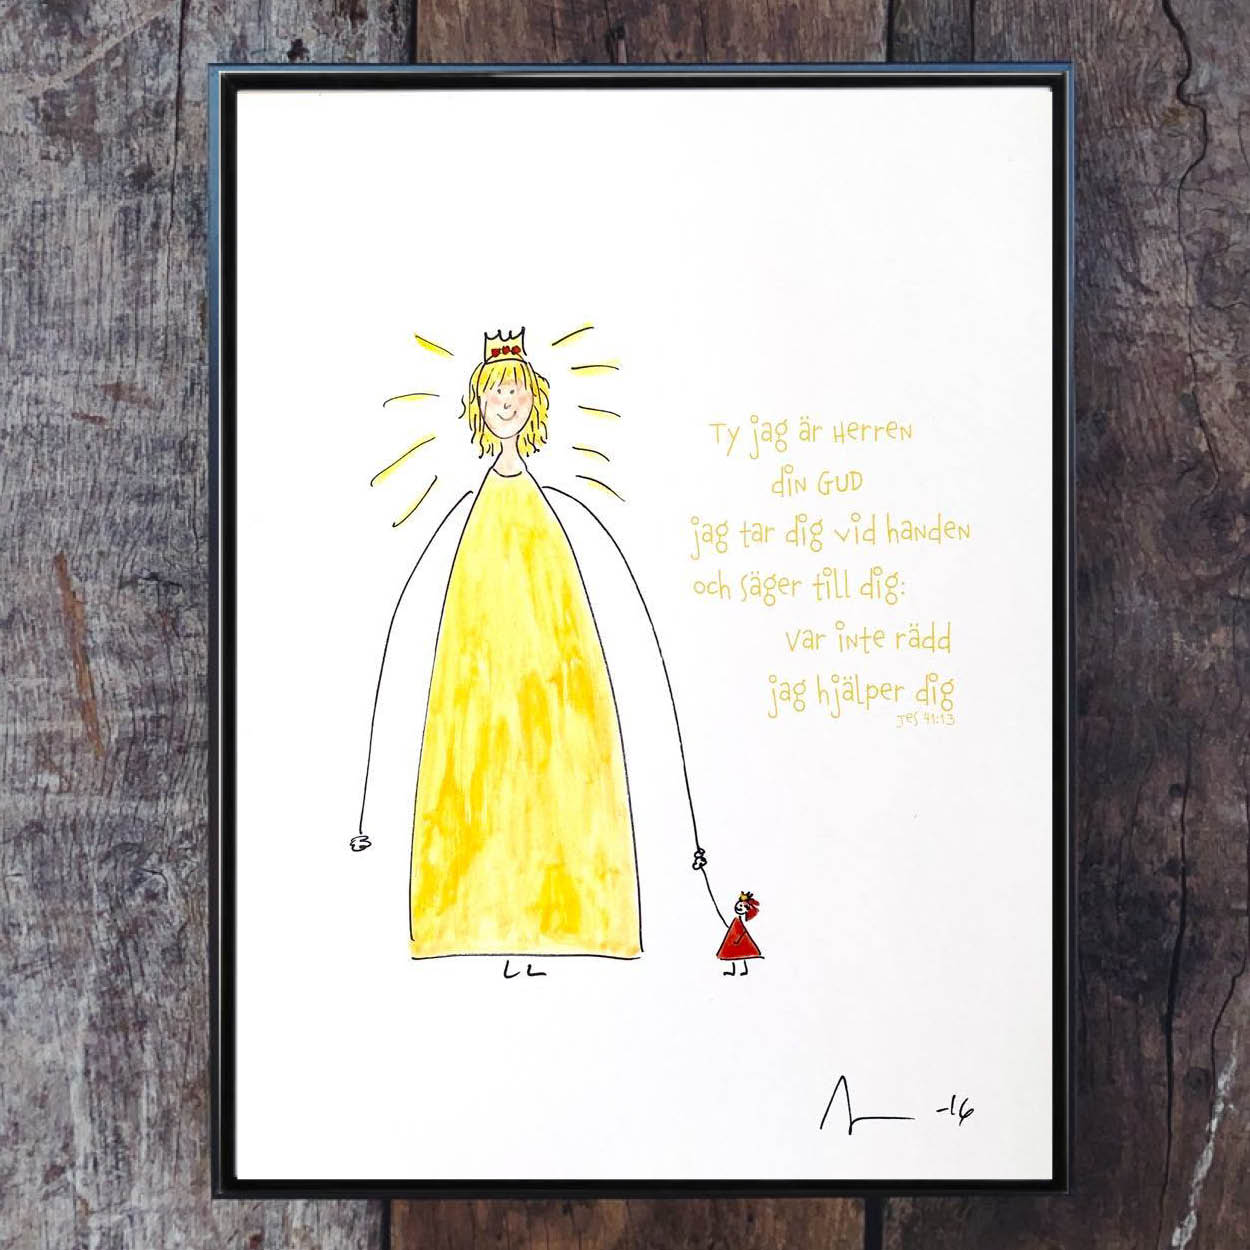 Ty jag är Herren
din GUD
jag tar dig vid handen
och säger till dig:
var inte rädd
jag hjälper dig
Jes 41:13
-16